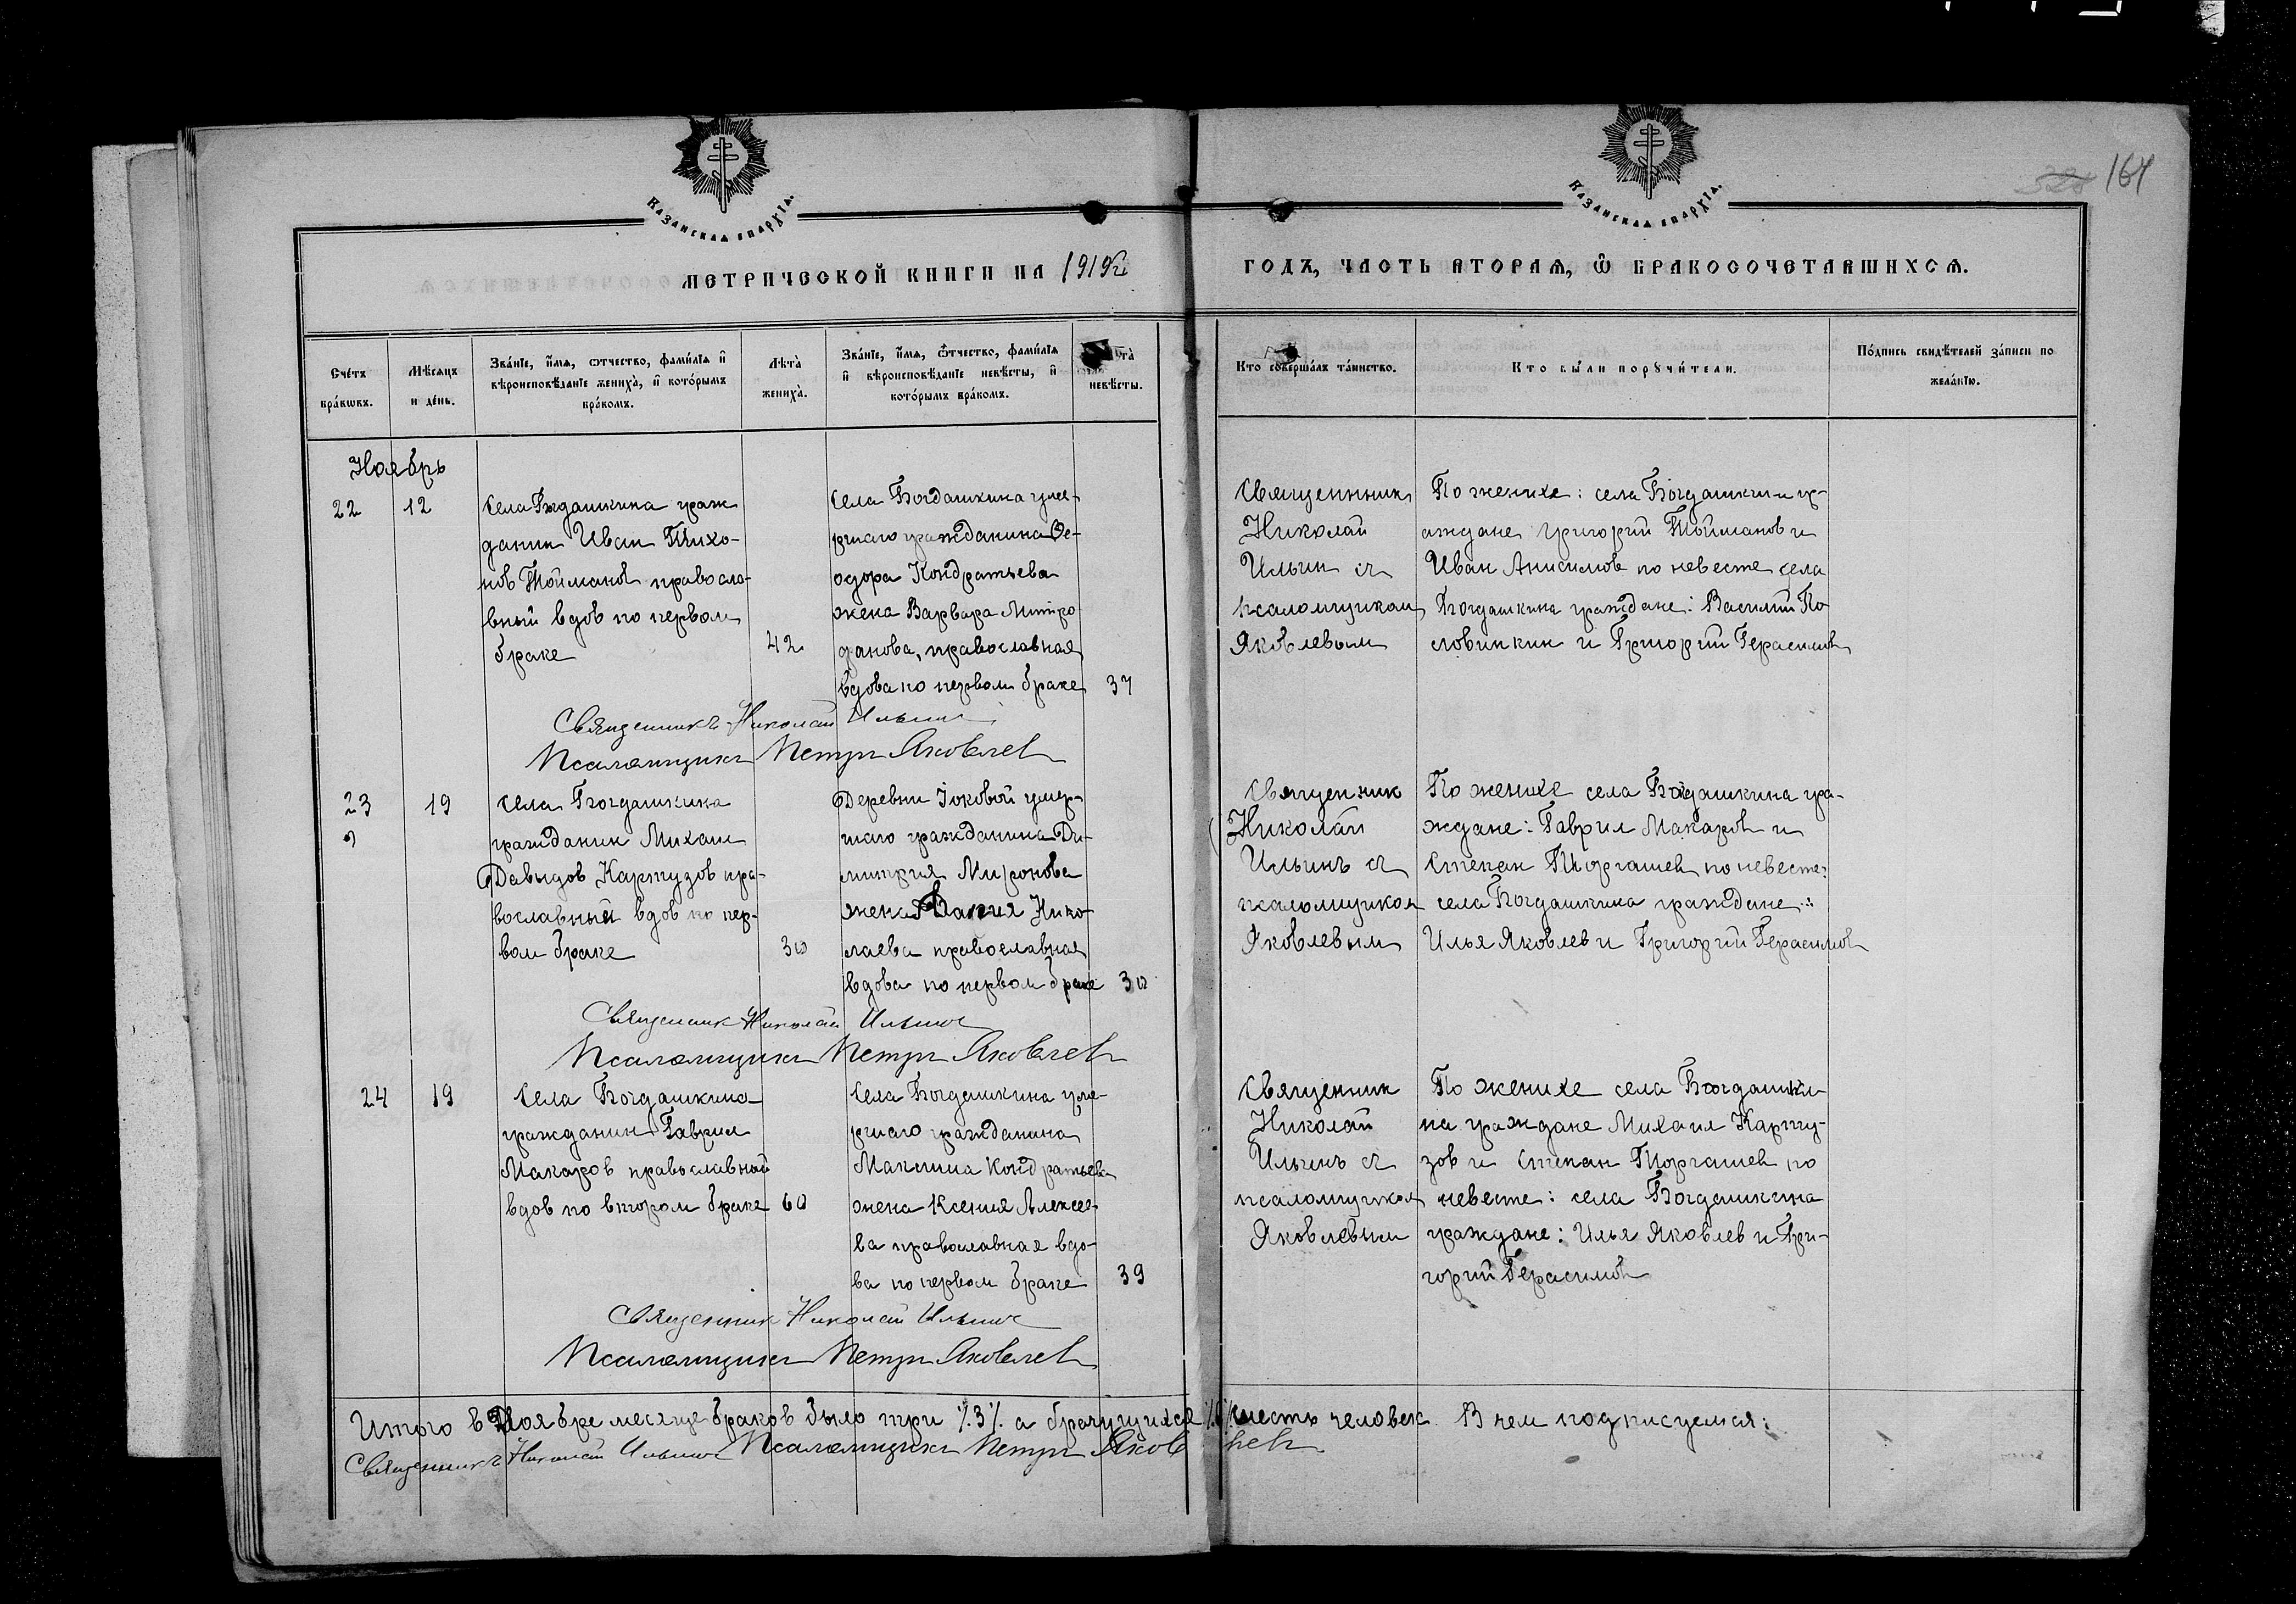 164
КАЗАНСКАѦ ЄПАРХІѦ.
КАЗАНСКАѦ ЄПАРХІѦ.
МЕТРИЧЕСКОЙ КНИГИ НА 1919 г
ГОДЪ, ЧАСТЬ ВТОРАѦ, Ѿ БРАКОСОЧЕТАВШИХСѦ.
Сче́тъ бра́кѡвъ.
Мѣ́сѧцъ и де́нь.
Зва́нїе, и҆́мѧ, ѻтчество, фами́лїѧ и҆ вѣроисповѣ́данїе жениха̀, и҆ кото́рымъ бра́комъ.
Лѣта̀ жениха̀.
Зва́нїе, и҆́мѧ, ѻтчество, фами́лїѧ и҆ вѣроисповѣ́данїе невѣ́сты, и҆ кото́рымъ бра́комъ.
та̀ невѣ́сты.
Кто соверша́лъ та́инство.
Кто бы́ли порꙋчи́тели.
По́дпись свидѣ́телей за́писи по жела́нїю.
Ноябрь
22
12
Села Богдашкина граж
данин Иван Тихо-
нов Тойманов правосла-
вный вдов по первом
браке
42
Села Богдашкина уме-
ршаго гражданина Фе-
одора Кондратьева
жена Варвара Митро
фанова, православная
вдова по первом браке
37
Священник
Николай
Ильин съ
псаломщиком
Яковлевым
По женихе: села Богдашкин гр-
аждане Григорий Тойманов и
Иван Анисимов по невесте села
Богдашкина граждане: Василий По
ловинкин и Григорий Герасимов
Священникъ Николай Ильинъ
Псаломщикъ Петръ Яковлевъ
23
19
Села Богдашкина
гражданин Михаил
Давыдов Картузов пра-
вославный вдов по пер-
вом браке
30
Деревни Іоковой умер-
шаго гражданина Ди-
митрия Миронова
жена Дария Нико-
лаева православная
вдова по первом браке
30
Священник
Николай
Ильинъ съ
псаломщиком
Яковлевым
По женихе села Богдашкина гра-
ждане: Гаврил Макаров и
Степан Торгашев по невесте:
села Богдашкина граждане:
Илья Яковлев и Григорий Герасимов
Священник Николай Ильинъ
Псаломщикъ Петръ Яковлевъ
24
19
Села Богдашкина
гражданин Гаврил
Макаров православный
вдов по втором браке
60
Села Богдашкина уме-
ршаго гражданина
Максима Кондратьева
жена Ксения Алексее-
ва православная вдо-
ва по первом браке
39
Священник
Николай
Ильинъ съ
псаломщиком
Яковлевым
По женихе села Богдашки-
на граждане Михаил Карту-
зов и Степан Торгашев по
невесте: села Богдашкина
граждане: Илья Яковлев и Гри-
горий Герасимов
Священник Николай Ильинъ
Псаломщикъ Петръ Яковлевъ
Итого в Ноябре месяце браков было три %3% а брачущихся %6% шесть человек. В чем подписуемся:
Священникъ Николай Ильинъ Псаломщикъ Петръ Яковлевъ